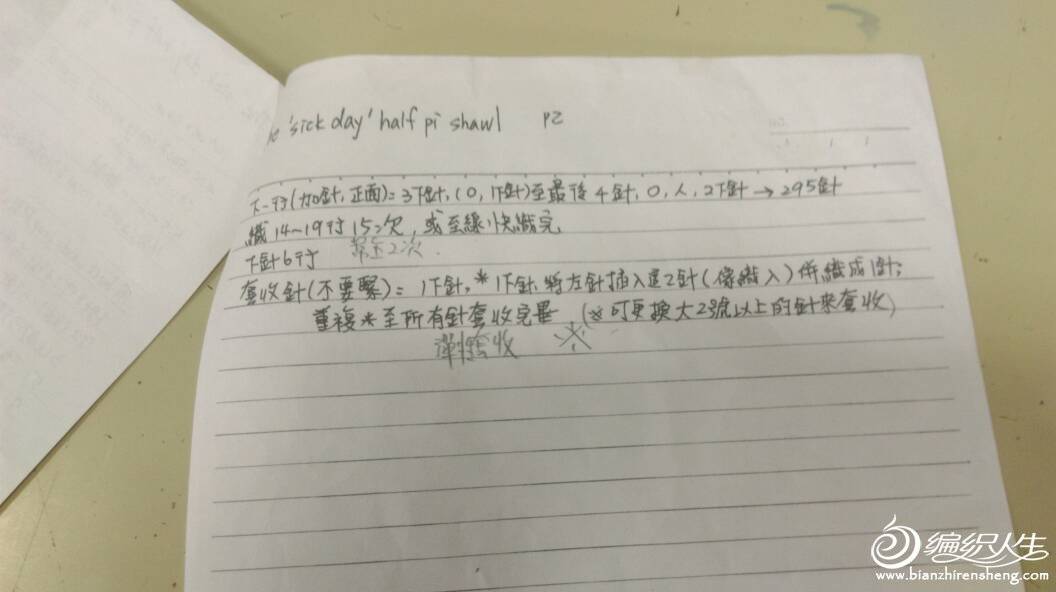 'sick day' half pi shawl P2
下一行(加針,正面)=3下針,(0,1下針)至最後4針,0,人,2下針→295針
織14~19行15次,或至線快織完
下針6行
套收針(不要緊)=1下針,*1下針,將左針插入這2針(像織入)併織成1針;
重複*至所有針套收完畢 (※可更換大2號以上的針來套收)
彈性套收 ※
编织人生
www.bianzhirensheng.com